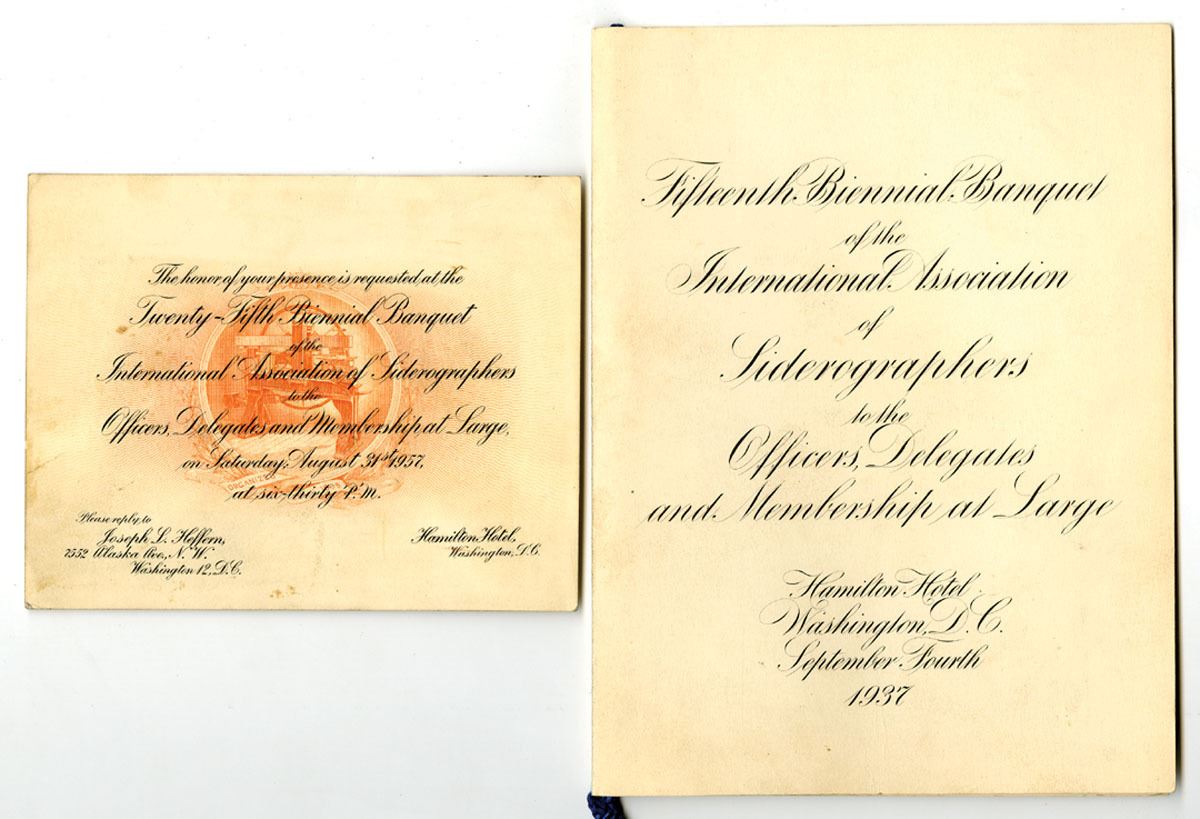 The honor of your presence is requested at the
Twenty-Fifth Biennial Banquet
of the
International Association of Siderographers
to the
Officers, Delegates and Membership at Large,
on Saturday, August 31st 1957,
at six-thirty P.M.
ORGANIZED
Please reply to
Joseph L. Heffern,
7552 Alaska Ave., N.W.
Washington 12, D.C.
Hamilton Hotel,
Washington, D.C.
Fifteenth Biennial Banquet
of the
International Association
of
Siderographers
to the
Officers, Delegates
and Membership at Large
Hamilton Hotel
Washington, D.C.
September Fourth
1937